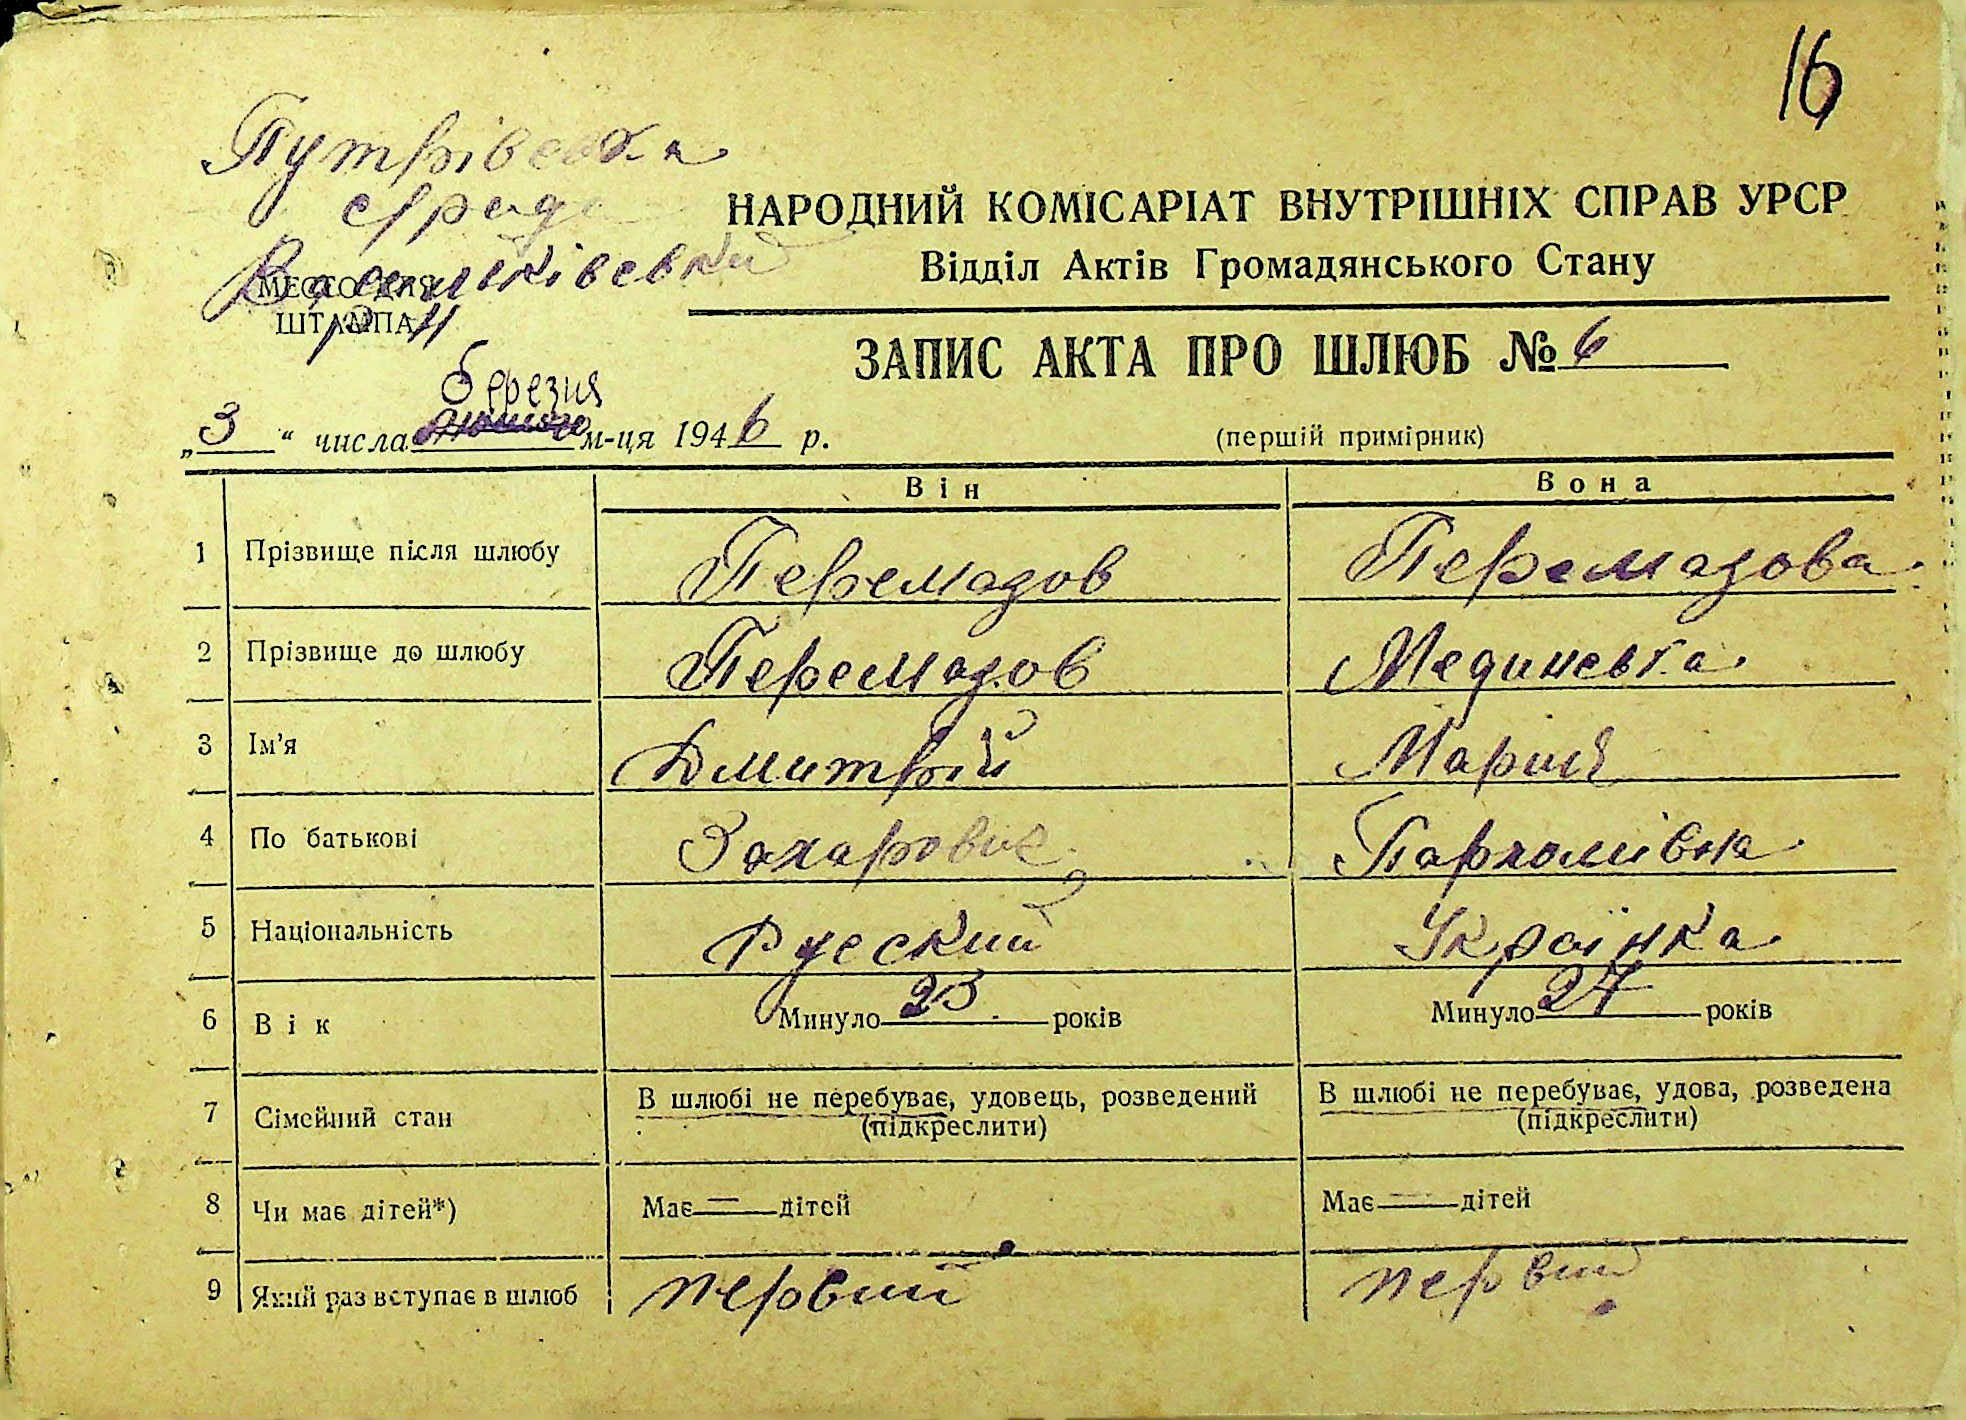 16
Путрівська
с/рада
НАРОДНИЙ КОМІСАРІАТ ВНУТРІШНІХ СПРАВ УРСР
Васильківський
Відділ Актів Громадянського Стану
МЕСТО ДЛЯ
ШТАМПА
р-н
ЗАПИС АКТА ПРО ШЛЮБ № 6
березня
„3“ числа м-ця 1946 р.
(першій примірник)
Він Вона
1 Прізвище після шлюбу Перемазов Перемазова
2 Прізвище до шлюбу Перемазов Мединська
3 Ім'я Дмитрій Марія
4 По батькові Захарович Пархомівна
5 Національність Русский Українка
6 Вік Минуло 23 років Минуло 24 років
7 Сімейний стан В шлюбі не перебуває, удовець, розведений В шлюбі не перебуває, удова, розведена
(підкреслити) (підкреслити)
8 Чи має дітей*) Має — дітей Має — дітей
9 Який раз вступає в шлюб первий первий